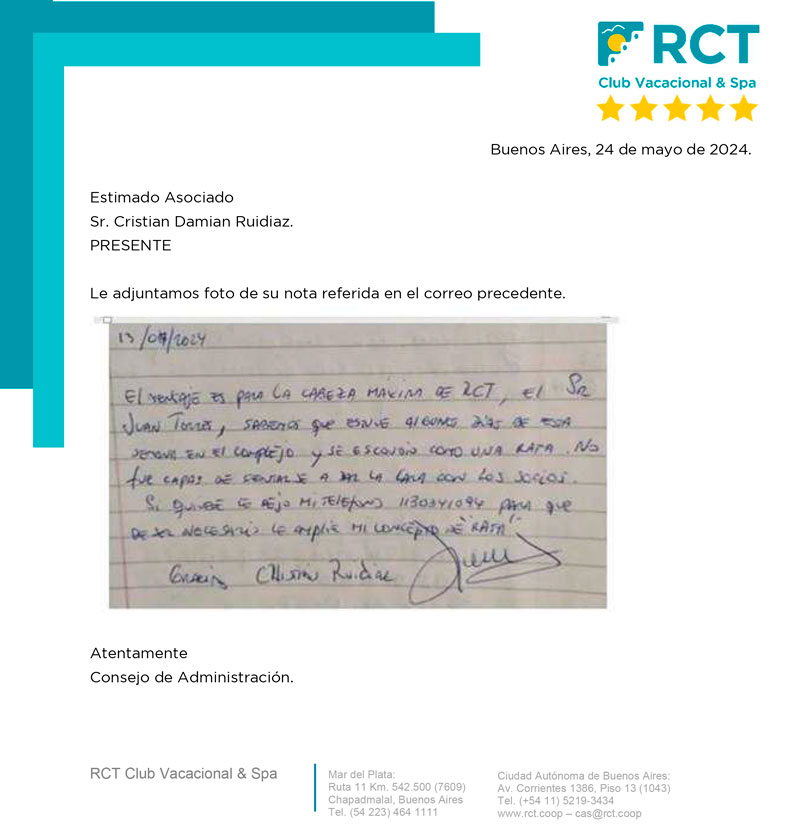 RCT
Club Vacacional & Spa
Buenos Aires, 24 de mayo de 2024.
Estimado Asociado
Sr. Cristian Damian Ruidiaz.
PRESENTE
Le adjuntamos foto de su nota referida en el correo precedente.
13/04/2024
El mensaje es para la cabeza maxima de RCT, el Sr
Juan Torres, sabemos que estuve algunos días de esta
semana en el complejo y se escondio como una rata. No
fue capas de sentarse a dar la cara con los socios.
Si quiere le dejo mi teléfono 1130341094 para que
de ser necesario le amplie mi concepto de "rata".
Gracias Cristian Ruidiaz
Atentamente
Consejo de Administración.
RCT Club Vacacional & Spa
Mar del Plata:
Ruta 11 Km. 542.500 (7609)
Chapadmalal, Buenos Aires
Tel. (54 223) 464 1111
Ciudad Autónoma de Buenos Aires:
Av. Corrientes 1386, Piso 13 (1043)
Tel. (+54 11) 5219-3434
www.rct.coop – cas@rct.coop